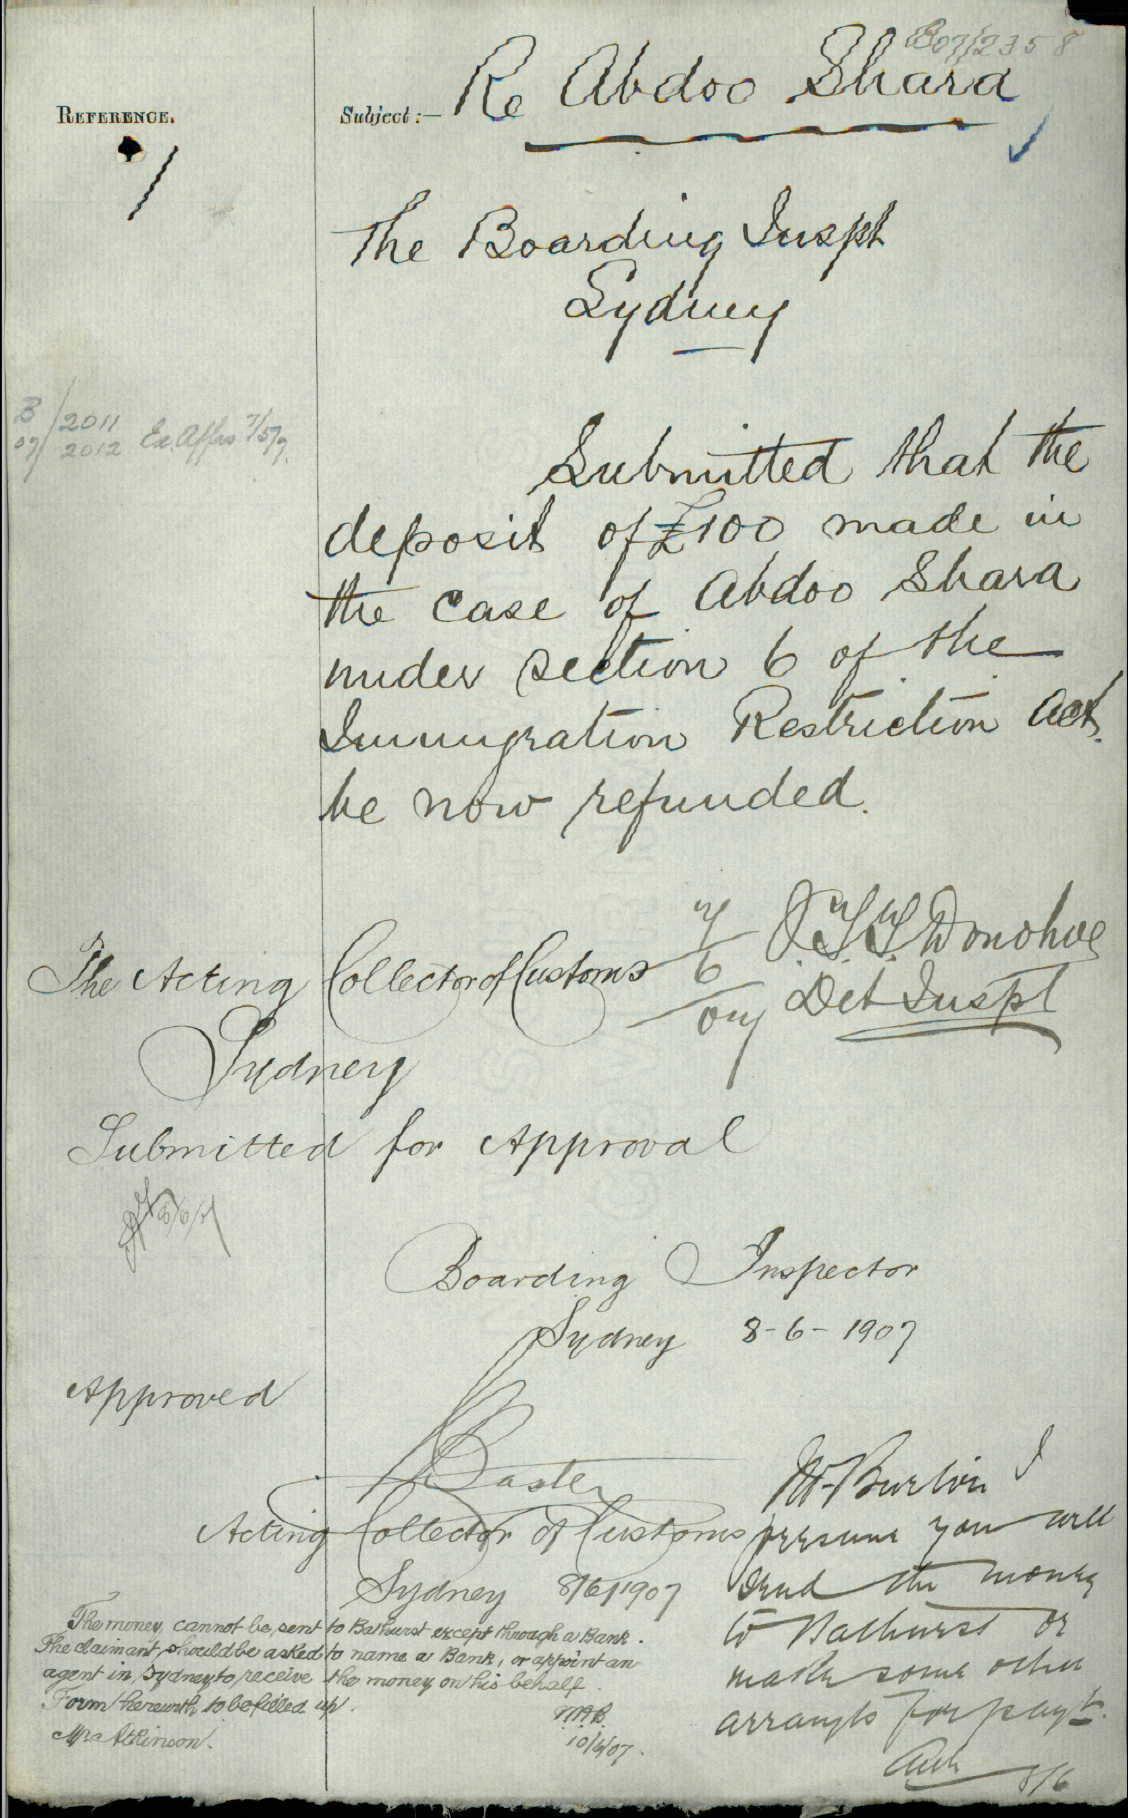 B07/2358
REFERENCE.
Subject :— Re Abdoo Shara
The Boarding Inspt
Sydney
B 07/ 2011 2012 Ex. Affrs 7/5/7.
Submitted that the
deposit of £100 made in
the case of Abdoo Shara
under section 6 of the
Immigration Restriction Act.
be now refunded.
J.T.T. Donohoe
Det Inspt
7/6/07
The Acting Collector of Customs
Sydney
Submitted for Approval
8/6/7
Boarding Inspector
Sydney 8-6-1907
Approved
Baxter
Acting Collector of Customs
Sydney 8/6/1907
Mr Burton I
presume you will
send the money
to Bathurst or
make some other
arrangts for payt.
8/6
The money cannot be sent to Bathurst except through a Bank.
The claimant should be asked to name a Bank, or appoint an
agent in Sydney to receive the money on his behalf.
Form herewith to be filled up.
Mr. Atkinson.
10/6/07.